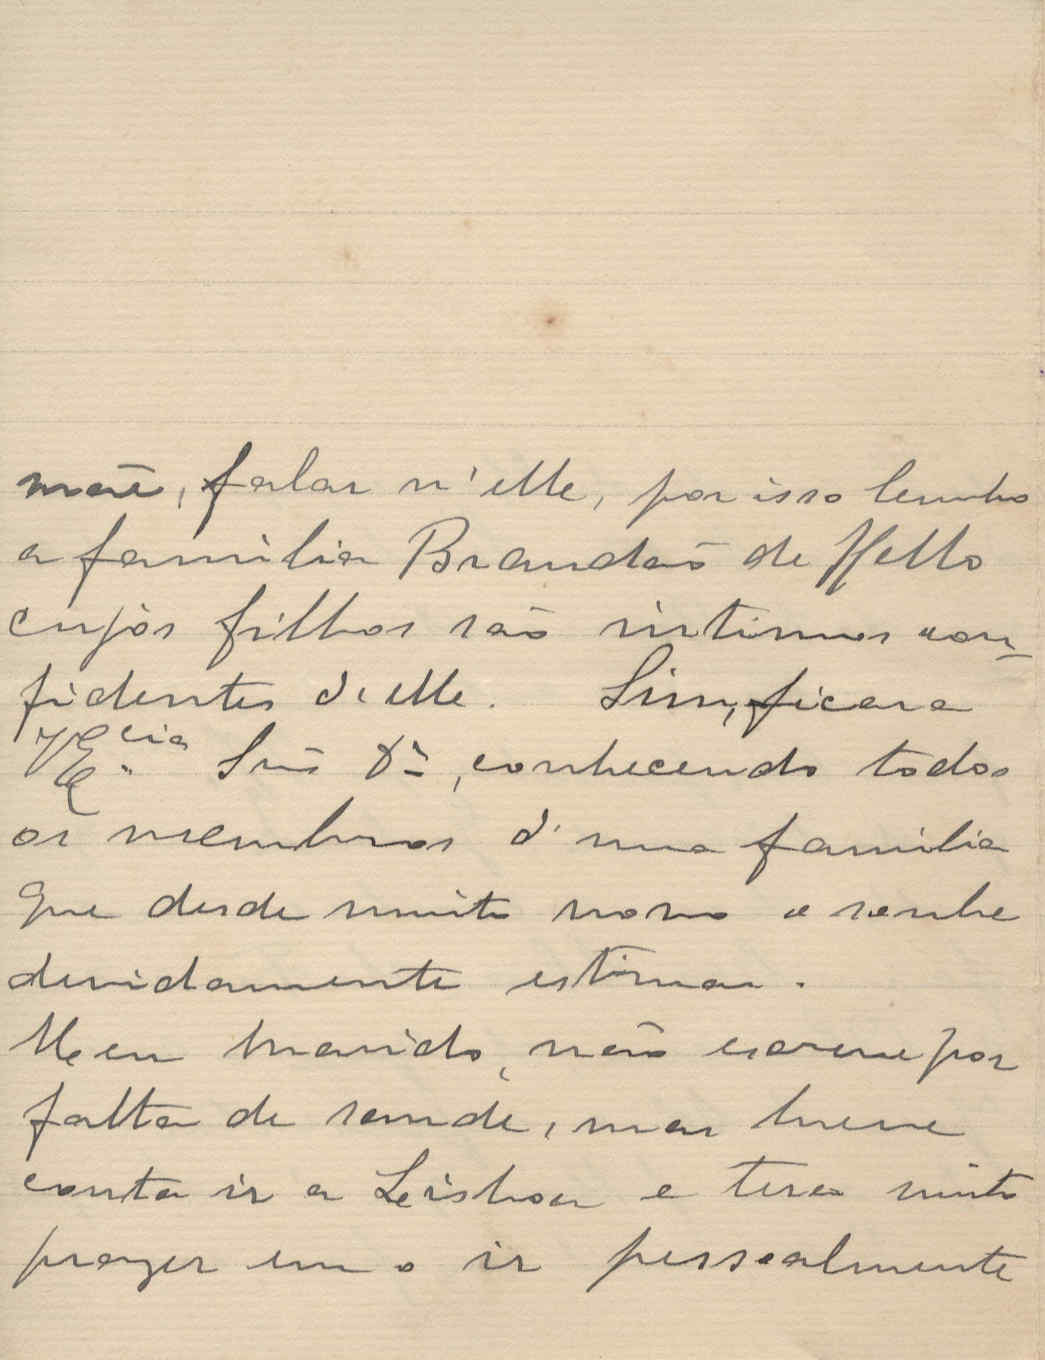 mãe, falar n'elle, por isso lembro
a familia Brandão de Mello
cujos filhos são intimos con-
fidentes d'elle. Sim, ficara
VEx.cia Snr. Dr., conhecendo todos
os membros d'uma familia
que desde muito novo o soube
devidamente estimar.
Meu marido, não escreve por
falta de saude, mas breve
conta ir a Leisboa e terá muito
prazer em o ir pessoalmente